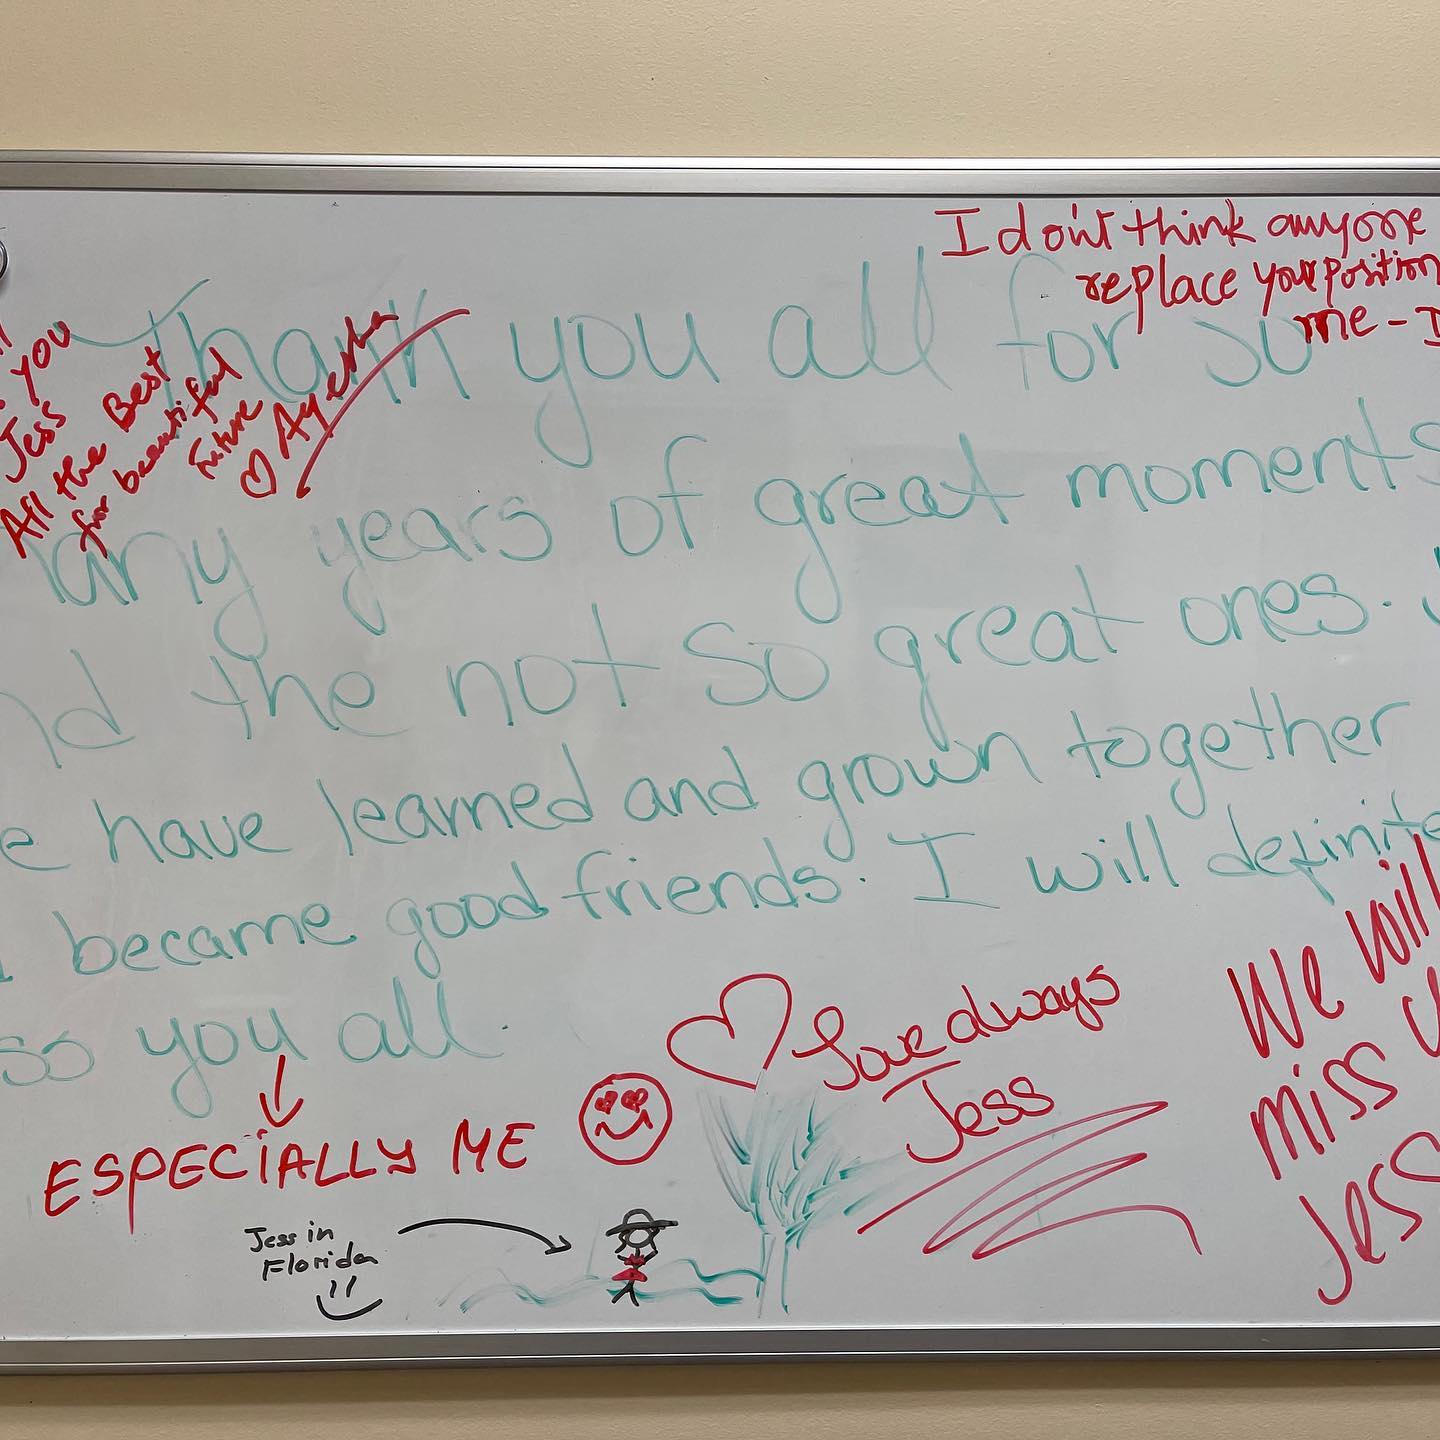 I don't think anyone
replace your position
me - I
you
Jess
All the Best
for beautiful
future
Ayesha
Thank you all for so
many years of great moments
the not so great ones.
have learned and grown together
became good friends. I will
you all.
ESPECIALLY ME
Love always
Jess
We will
miss
Jess
Jess in
Florida